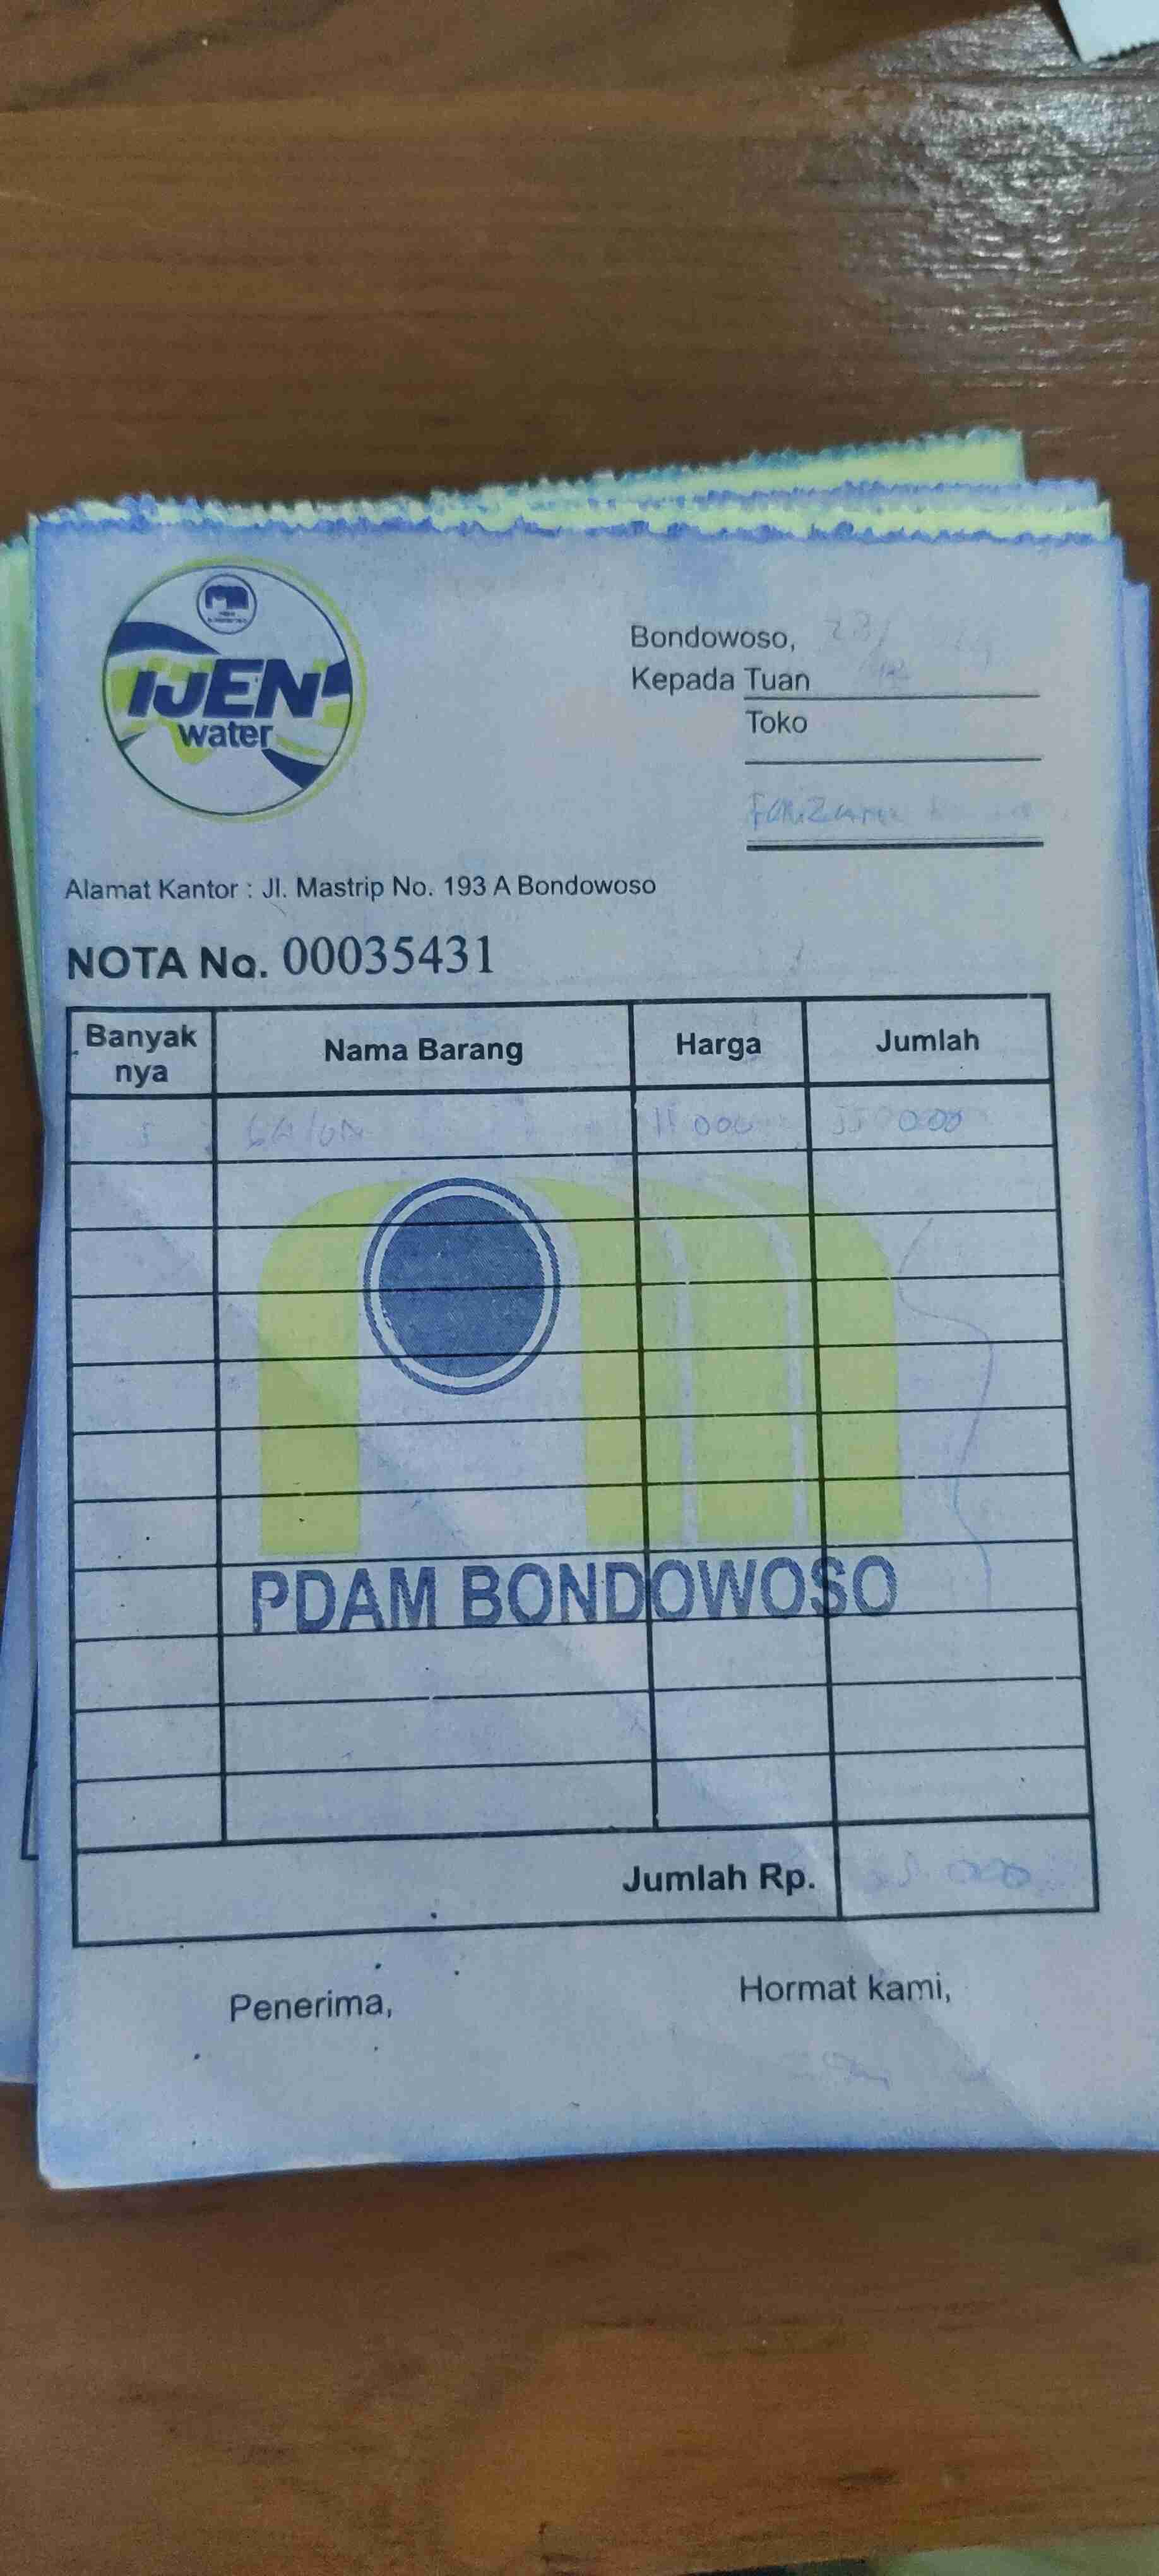 IJEN
water
Bondowoso, 23/
Kepada Tuan
Toko
Alamat Kantor : Jl. Mastrip No. 193 A Bondowoso
NOTA No. 00035431
Banyak nya Nama Barang Harga Jumlah
5 GALON 11 000 55 000
PDAM BONDOWOSO
Jumlah Rp. 55 000
Penerima, Hormat kami,